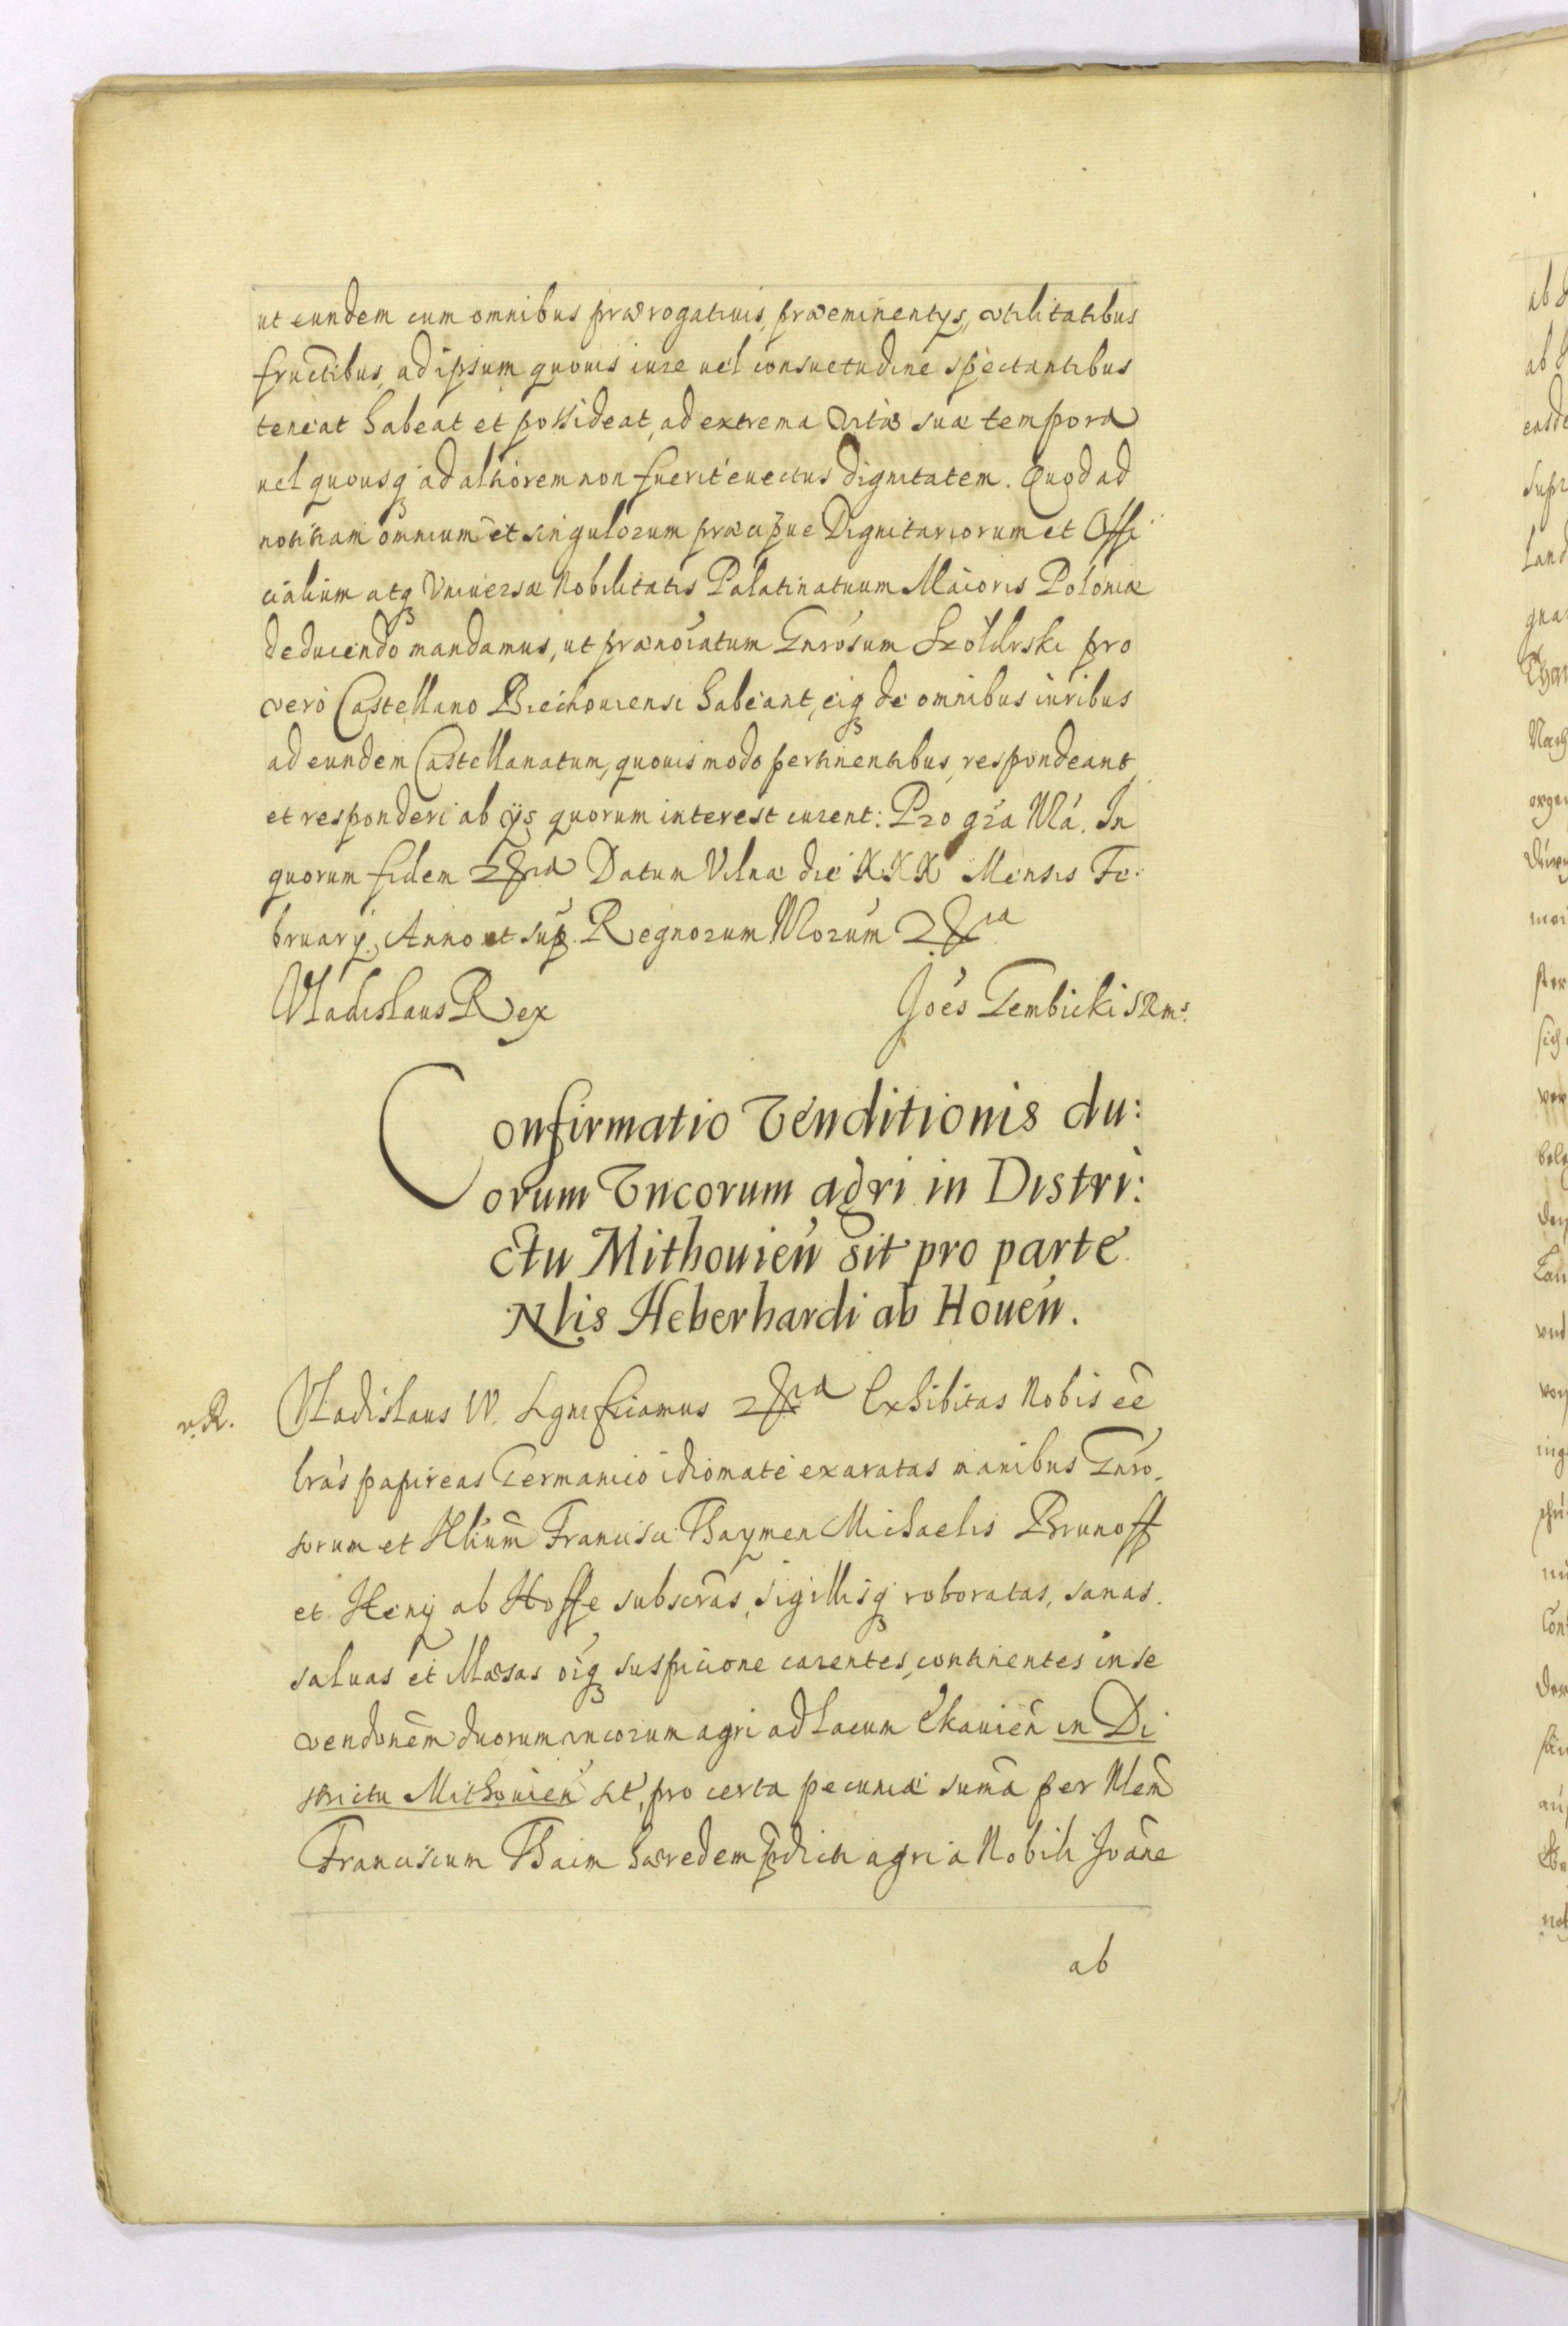 ut eundem cum omnibus prærogatiuis, præeminentijs, vtilitatibus
fructibus, ad ipsum quouis iure uel consuetudine spectantibus
teneat habeat et possideat, ad extrema vitæ suæ tempora
uel quousq3 ad altiorem non fuerit euectus dignitatem. Quod ad
notitiam omnium et singulorum præcipue Dignitariorum et Offi
cialium atq3 Vniuersæ Nobilitatis Palatinatuum Maioris Poloniæ
deducendo mandamus, ut prænoiatum Gnrosum Szołdrski pro
vero Castellano Biechouiensi habeant, eiq3 de omnibus iuribus
ad eundem Castellanatum, quouis modo pertinentibus, respondeant
et responderi ab ijs quorum interest curent: Pro gra Nrã. In
quorum fidem &ra Datum Vilnæ die XXX Mensis Fe:
bruarij Anno ut sup. Regnorum Nrorum &ra
Vladislaus Rex Joes Gembicki SRms.
Confirmatio Venditionis du:
orum Vncorum agri in Distri:
ctu Mithouien sit pro parte
Nlis Heberhardi ab Houen.
Vladislaus IV. Significamus &ra Exhibitas Nobis eë
lras papireas Germanico idiomate exaratas manibus Gnro,
sorum et Nlium Francisci Thaymen Michaelis Brunoff
et Henij ab Hoffe subscras, sigillisq3 roboratas, sanas
saluas et Illæsas oiq3 suspicione carentes, continentes in se
vendonem duorum vncorum agri ad Lacum Ekauien in Di
strictu Mithouien sit, pro certa pecuniæ suma per Nlem
Franciscum Thaim hæredem prdicti agri a Nobili Joane
ab
v. R.